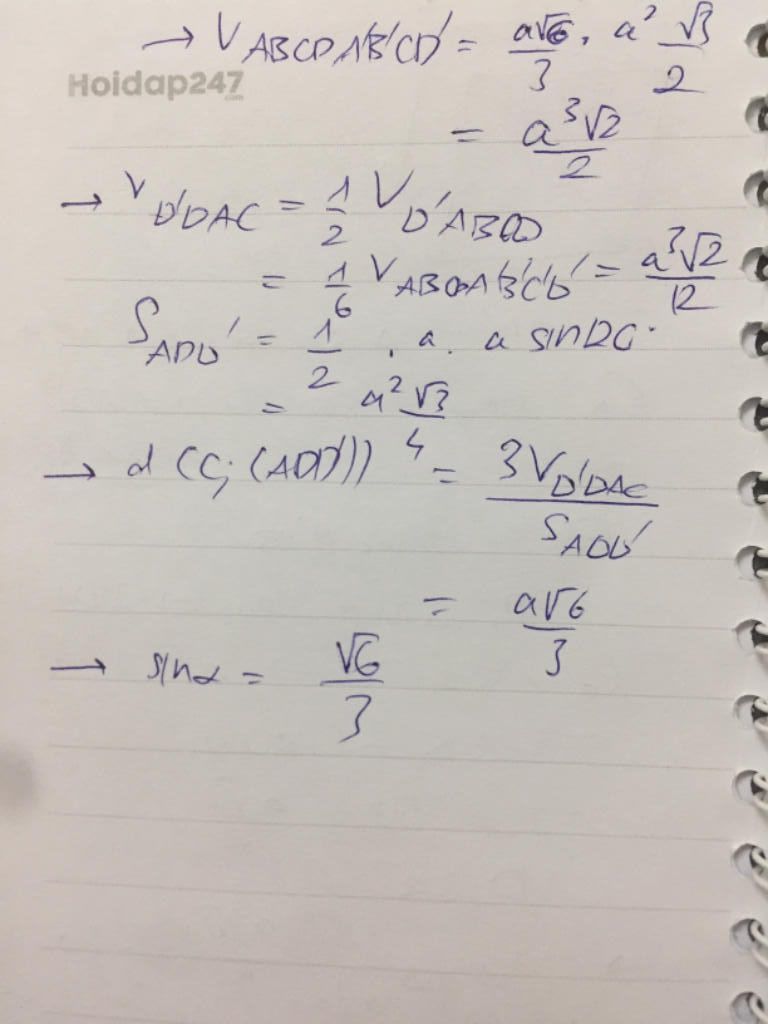 → V ABCDA'B'C'D' = a√6/3 . a² √3/2
Hoidap247
.com
= a³√2/2
→ V D'DAC = 1/2 V D'ABCD
= 1/6 V ABCDA'B'C'D' = a³√2/12
S ADD' = 1/2 . a . a sin120°
= a²√3/4
→ d(C; (ADD')) = 3V D'DAC / S ADD'
= a√6/3
→ sinα = √6/3